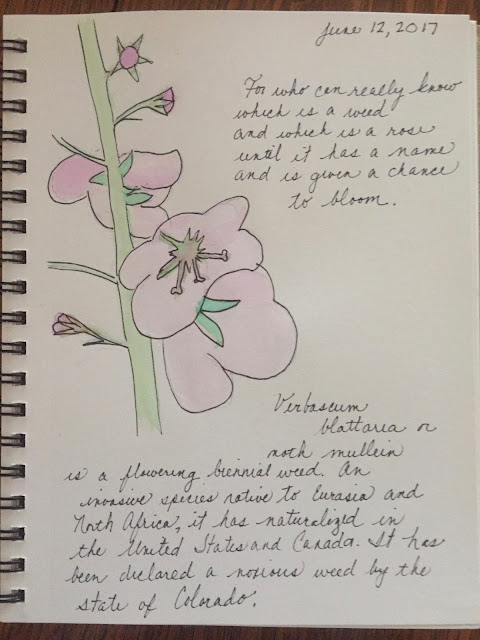 June 12, 2017
For who can really know
which is a weed
and which is a rose
until it has a name
and is given a chance
to bloom.
Verbascum
blattaria or
moth mullein
is a flowering biennial weed. An
invasive species native to Eurasia and
North Africa, it has naturalized in
the United States and Canada. It has
been declared a noxious weed by the
state of Colorado.